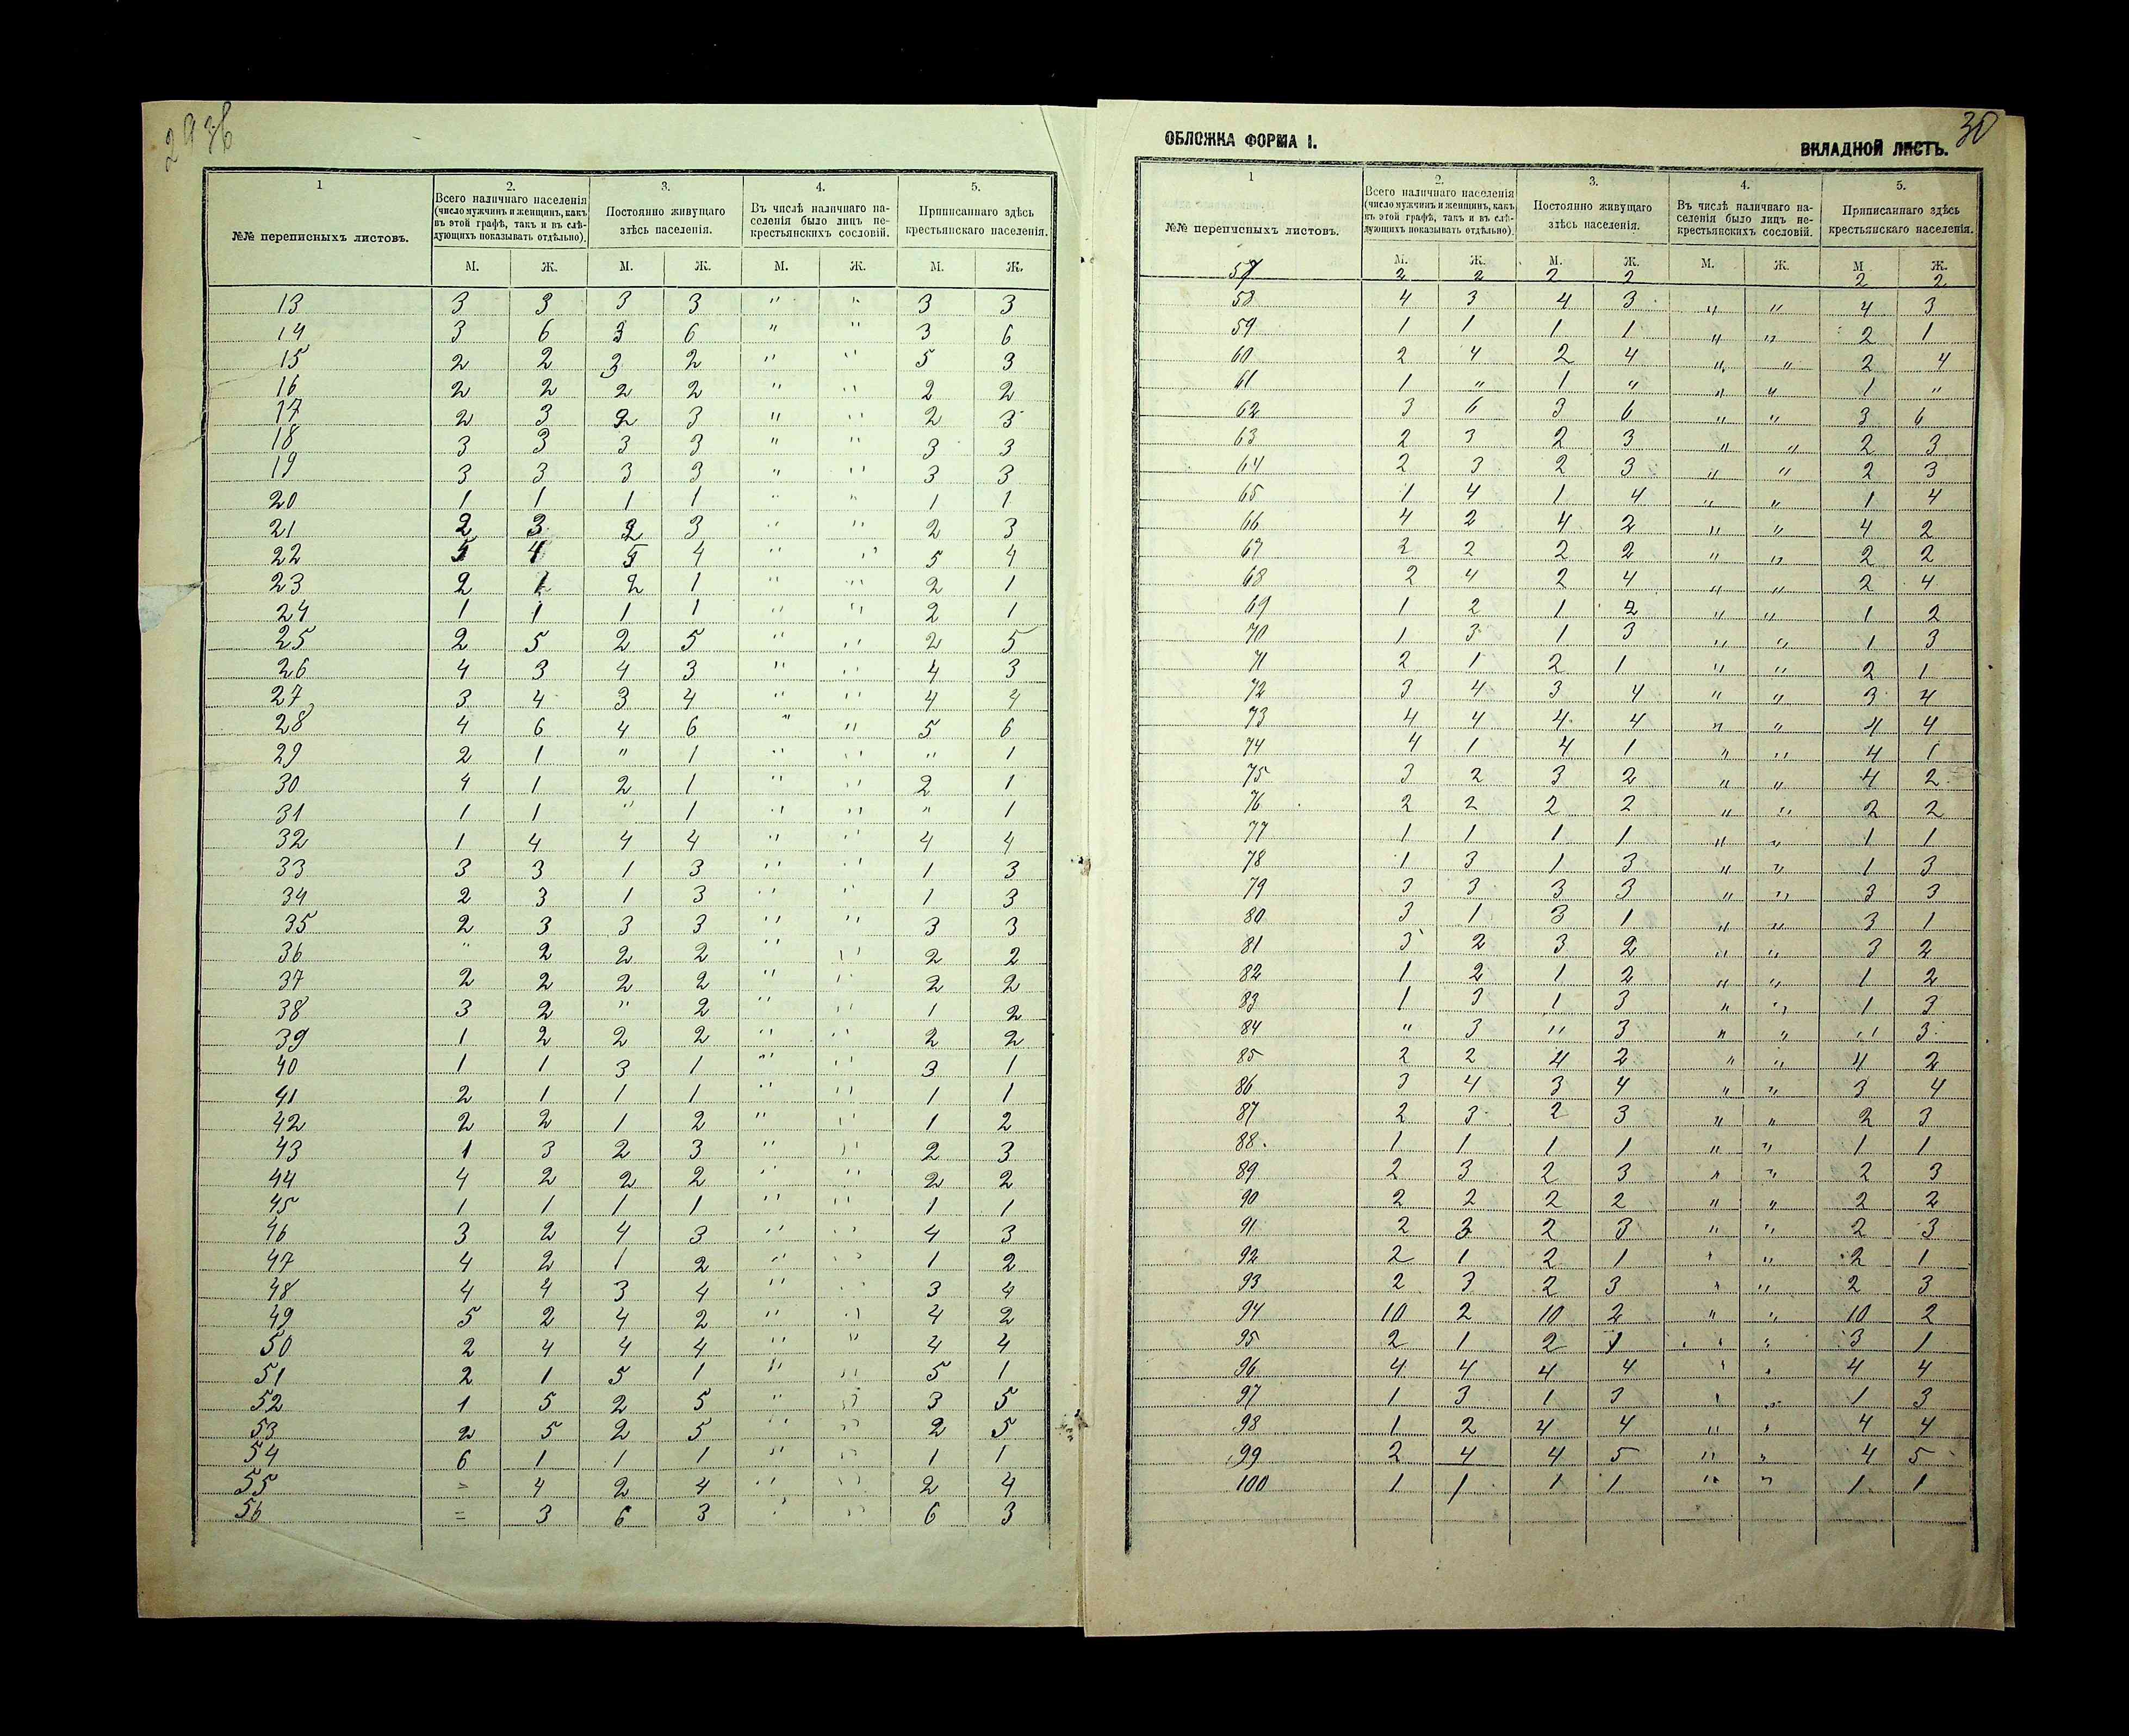 29 об
1 2. 3. 4. 5.
№№ переписныхъ листовъ. Всего наличнаго населенія (число мужчинъ и женщинъ, какъ въ этой графѣ, такъ и въ слѣдующихъ показывать отдѣльно). Постоянно живущаго здѣсь населенія. Въ числѣ наличнаго населенія было лицъ некрестьянскихъ сословій. Приписаннаго здѣсь крестьянскаго населенія.
М. Ж. М. Ж. М. Ж. М. Ж.
13 3 3 3 3 " " 3 3
14 3 6 3 6 " " 3 6
15 2 2 3 2 " " 5 3
16 2 2 2 2 " " 2 2
17 2 3 2 3 " " 2 3
18 3 3 3 3 " " 3 3
19 3 3 3 3 " " 3 3
20 1 1 1 1 " " 1 1
21 2 3 2 3 " " 2 3
22 5 4 5 4 " " 5 4
23 2 1 2 1 " " 2 1
24 1 1 1 1 " " 2 1
25 2 5 2 5 " " 2 5
26 4 3 4 3 " " 4 3
27 3 4 3 4 " " 4 4
28 4 6 4 6 " " 5 6
29 2 1 " 1 " " " 1
30 4 1 2 1 " " 2 1
31 1 1 " 1 " " " 1
32 1 4 4 4 " " 4 4
33 3 3 1 3 " " 1 3
34 2 3 1 3 " " 1 3
35 2 3 3 3 " " 3 3
36 " 2 2 2 " " 2 2
37 2 2 2 2 " " 2 2
38 3 2 " 2 " " 1 2
39 1 2 2 2 " " 2 2
40 1 1 3 1 " " 3 1
41 2 1 1 1 " " 1 1
42 2 2 1 2 " " 1 2
43 1 3 2 3 " " 2 3
44 4 2 2 2 " " 2 2
45 1 1 1 1 " " 1 1
46 3 2 4 3 " " 4 3
47 4 2 1 2 " " 1 2
48 4 4 3 4 " " 3 4
49 5 2 4 2 " " 4 2
50 2 4 4 4 " " 4 4
51 2 1 5 1 " " 5 1
52 1 5 2 5 " " 3 5
53 2 5 2 5 " " 2 5
54 6 1 1 1 " " 1 1
55 = 4 2 4 " " 2 4
56 = 3 6 3 " " 6 3
30
ОБЛОЖКА ФОРМА I. ВКЛАДНОЙ ЛИСТЪ.
1 2. 3. 4. 5.
№№ переписныхъ листовъ. Всего наличнаго населенія (число мужчинъ и женщинъ, какъ въ этой графѣ, такъ и въ слѣдующихъ показывать отдѣльно). Постоянно живущаго здѣсь населенія. Въ числѣ наличнаго населенія было лицъ некрестьянскихъ сословій. Приписаннаго здѣсь крестьянскаго населенія.
М. Ж. М. Ж. М. Ж. М Ж.
57 2 2 2 2 2 2
58 4 3 4 3 " " 4 3
59 1 1 1 1 " " 2 1
60 2 4 2 4 " " 2 4
61 1 " 1 " " " 1 "
62 3 6 3 6 " " 3 6
63 2 3 2 3 " " 2 3
64 2 3 2 3 " " 2 3
65 1 4 1 4 " " 1 4
66 4 2 4 2 " " 4 2
67 2 2 2 2 " " 2 2
68 2 4 2 4 " " 2 4
69 1 2 1 2 " " 1 2
70 1 3 1 3 " " 1 3
71 2 1 2 1 " " 2 1
72 3 4 3 4 " " 3 4
73 4 4 4 4 " " 4 4
74 4 1 4 1 " " 4 1
75 3 2 3 2 " " 4 2
76 2 2 2 2 " " 2 2
77 1 1 1 1 " " 1 1
78 1 3 1 3 " " 1 3
79 3 3 3 3 " " 3 3
80 3 1 3 1 " " 3 1
81 3 2 3 2 " " 3 2
82 1 2 1 2 " " 1 2
83 1 3 1 3 " " 1 3
84 " 3 " 3 " " " 3
85 2 2 4 2 " " 4 2
86 3 4 3 4 " " 3 4
87 2 3 2 3 " " 2 3
88. 1 1 1 1 " " 1 1
89 2 3 2 3 " " 2 3
90 2 2 2 2 " " 2 2
91 2 3 2 3 " " 2 3
92 2 1 2 1 " " 2 1
93 2 3 2 3 " " 2 3
94 10 2 10 2 " " 10 2
95 2 1 2 1 " " 3 1
96 4 4 4 4 " " 4 4
97 1 3 1 3 " " 1 3
98 1 2 4 4 " " 4 4
99 2 4 4 5 " " 4 5
100 1 1 1 1 " " 1 1